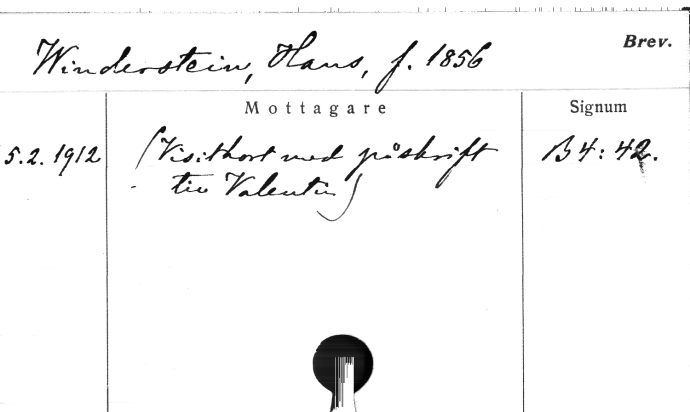 Brev.
Winderstein, Hans, f. 1856
Mottagare
Signum
5.2. 1912 (Visitkort med påskrift B4: 42.
till Valentin)